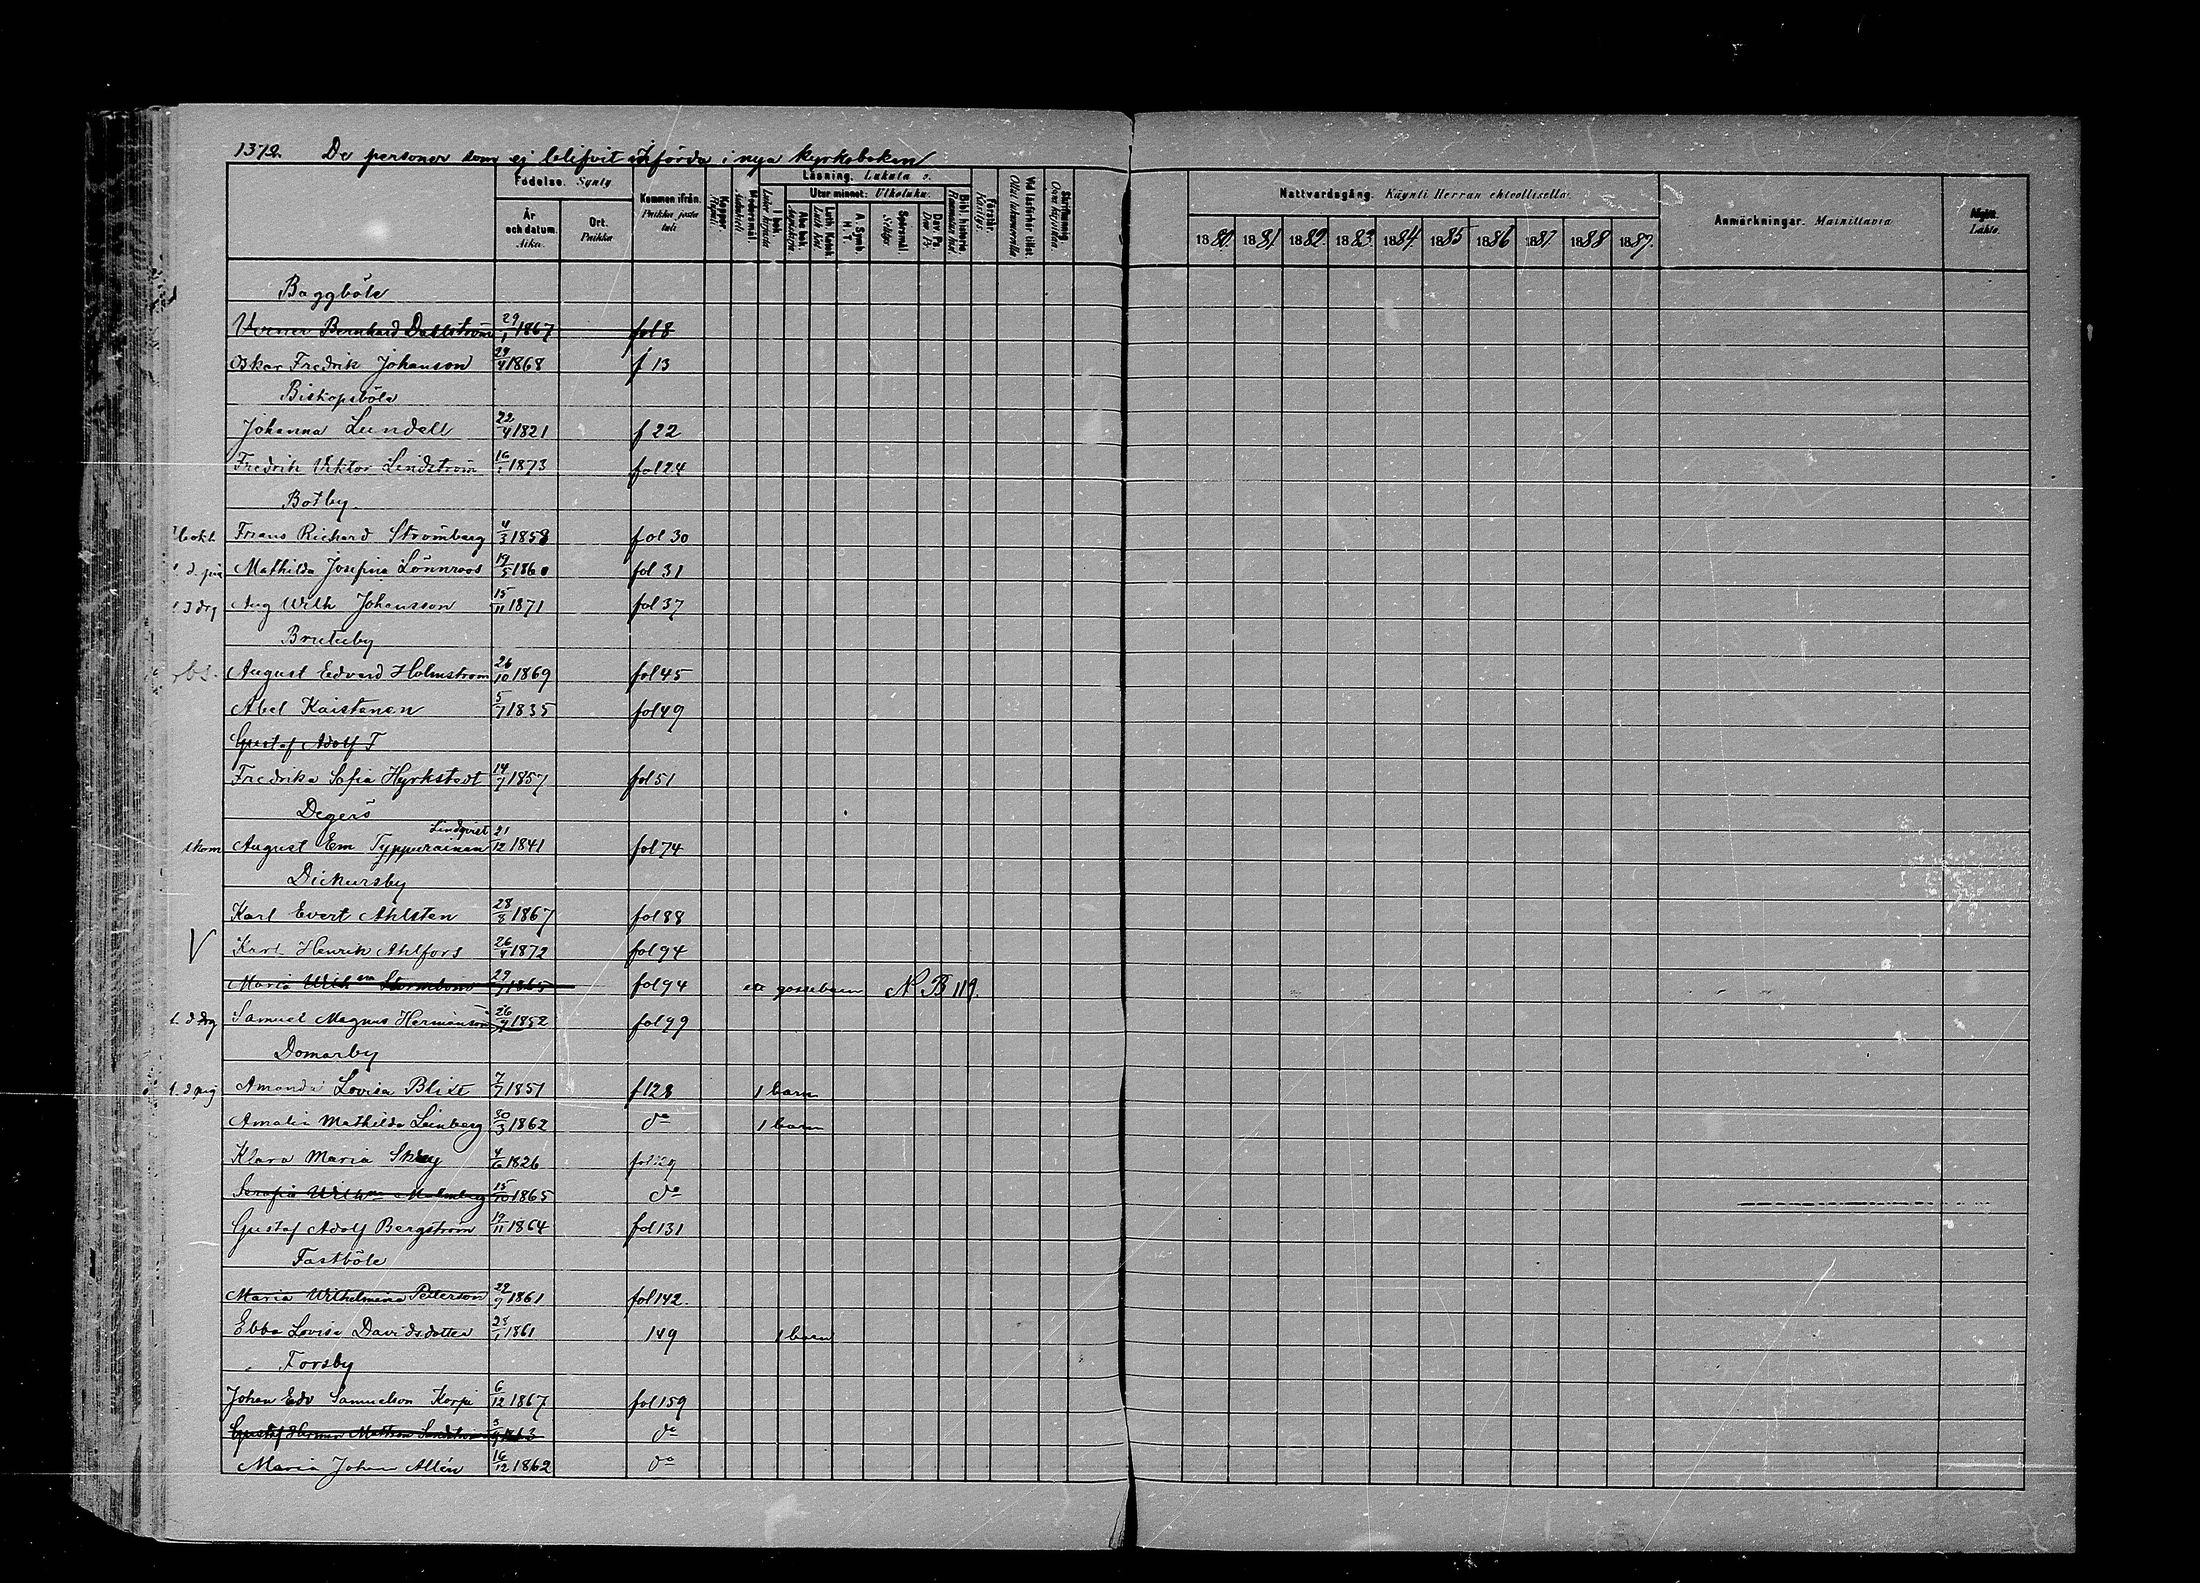 1372. De personer som ej blifvit införda i nya kyrkoboken
Födelse. Synty
År och datum. Aika.
Ort. Paikka
Kommen ifrån. Paikka josta tuli
Koppor. Rupuli.
Läsning. Lukuta :
I bok.
Utur minnet: Ulkoluku.
Abc bok.
Luth. Katek.
A. Symb. H. T.
Spörsmål.
Dav. Ps.
Bibl. historia.
Förstår. Käsitys.
Vid läsförhör tillst.
Skriftmång.
Nattvardsgång. Käynti Herran ehtoollisella.
1880. 1881 1882. 1883. 1884. 1885 1886 1887 1888 1889.
Anmärkningar. Mainittavia
Afgått. Lähtö.
Baggböle
Verner Bernhard Dahlström 29/1 1867 fol 8
Oskar Fredrik Johanson 29/4 1868 f 13
Biskopsböle
Johanna Lundell 22/4 1821 f 22
Fredrik Viktor Lindström 16/1 1873 fol 24
Botby.
Frans Richard Strömberg 4/3 1858 fol 30
Mathilda Josefina Lönnroos 19/5 1860 fol 31
Aug Wilh Johansson 15/11 1871 fol 37
Bruteby
obs. August Edvard Holmström 26/10 1869 fol 45
Abel Kaistanen 5/7 1835 fol 49
Gustaf Adolf T
Fredrika Sofia Hyrkstedt 14/7 1857 fol 51
Degerö
Lindqvist
skom August Em Typpurainen 21/12 1841 fol 74
Dickursby
Karl Evert Ahlsten 28/8 1867 fol 88
V Karl Henrik Ahlfors 26/4 1872 fol 94
Maria Wilh na 29/7 1865 fol 94 ett gossebarn N.B 119.
Samuel Magnus Hermanson 26/4 1852 fol 99
Domarby
Amanda Lovisa Blixt 7/7 1851 f 128 1 barn
Amalia Mathilda Leinberg 30/3 1862 do 1 barn
Klara Maria 4/6 1826 fol 129
Serafia Wilh na Malmberg 15/10 1865 do
Gustaf Adolf Bergström 19/11 1864 fol 131
Fastböle
Maria Wilhelmina Petterson 22/9 1861 fol 142.
Ebba Lovisa Davidsdotter 28/1 1861 149 1 barn
Forsby
Johan Edv Samuelson Korpi 6/12 1867 fol 159
Gustaf Herman Mattson do
Maria Johan Allén 16/12 1862 do